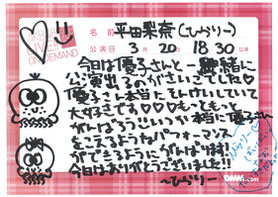 LIVE
ON DEMAND
名前 平田梨奈(ひらりー)
公演日 3月 20日 18:30公演
今日は優子さんと一緒に
公演出るのがさいごでした♡
優子さん本当にそんけいしていて
大好きです♡♡♡もっともっと
がんばっていつか本当に優子さん
をこえるようなパフォーマンス
ができるようにがんばります!
今日はありがとうございました!!
〜ひらりー
DMM.com